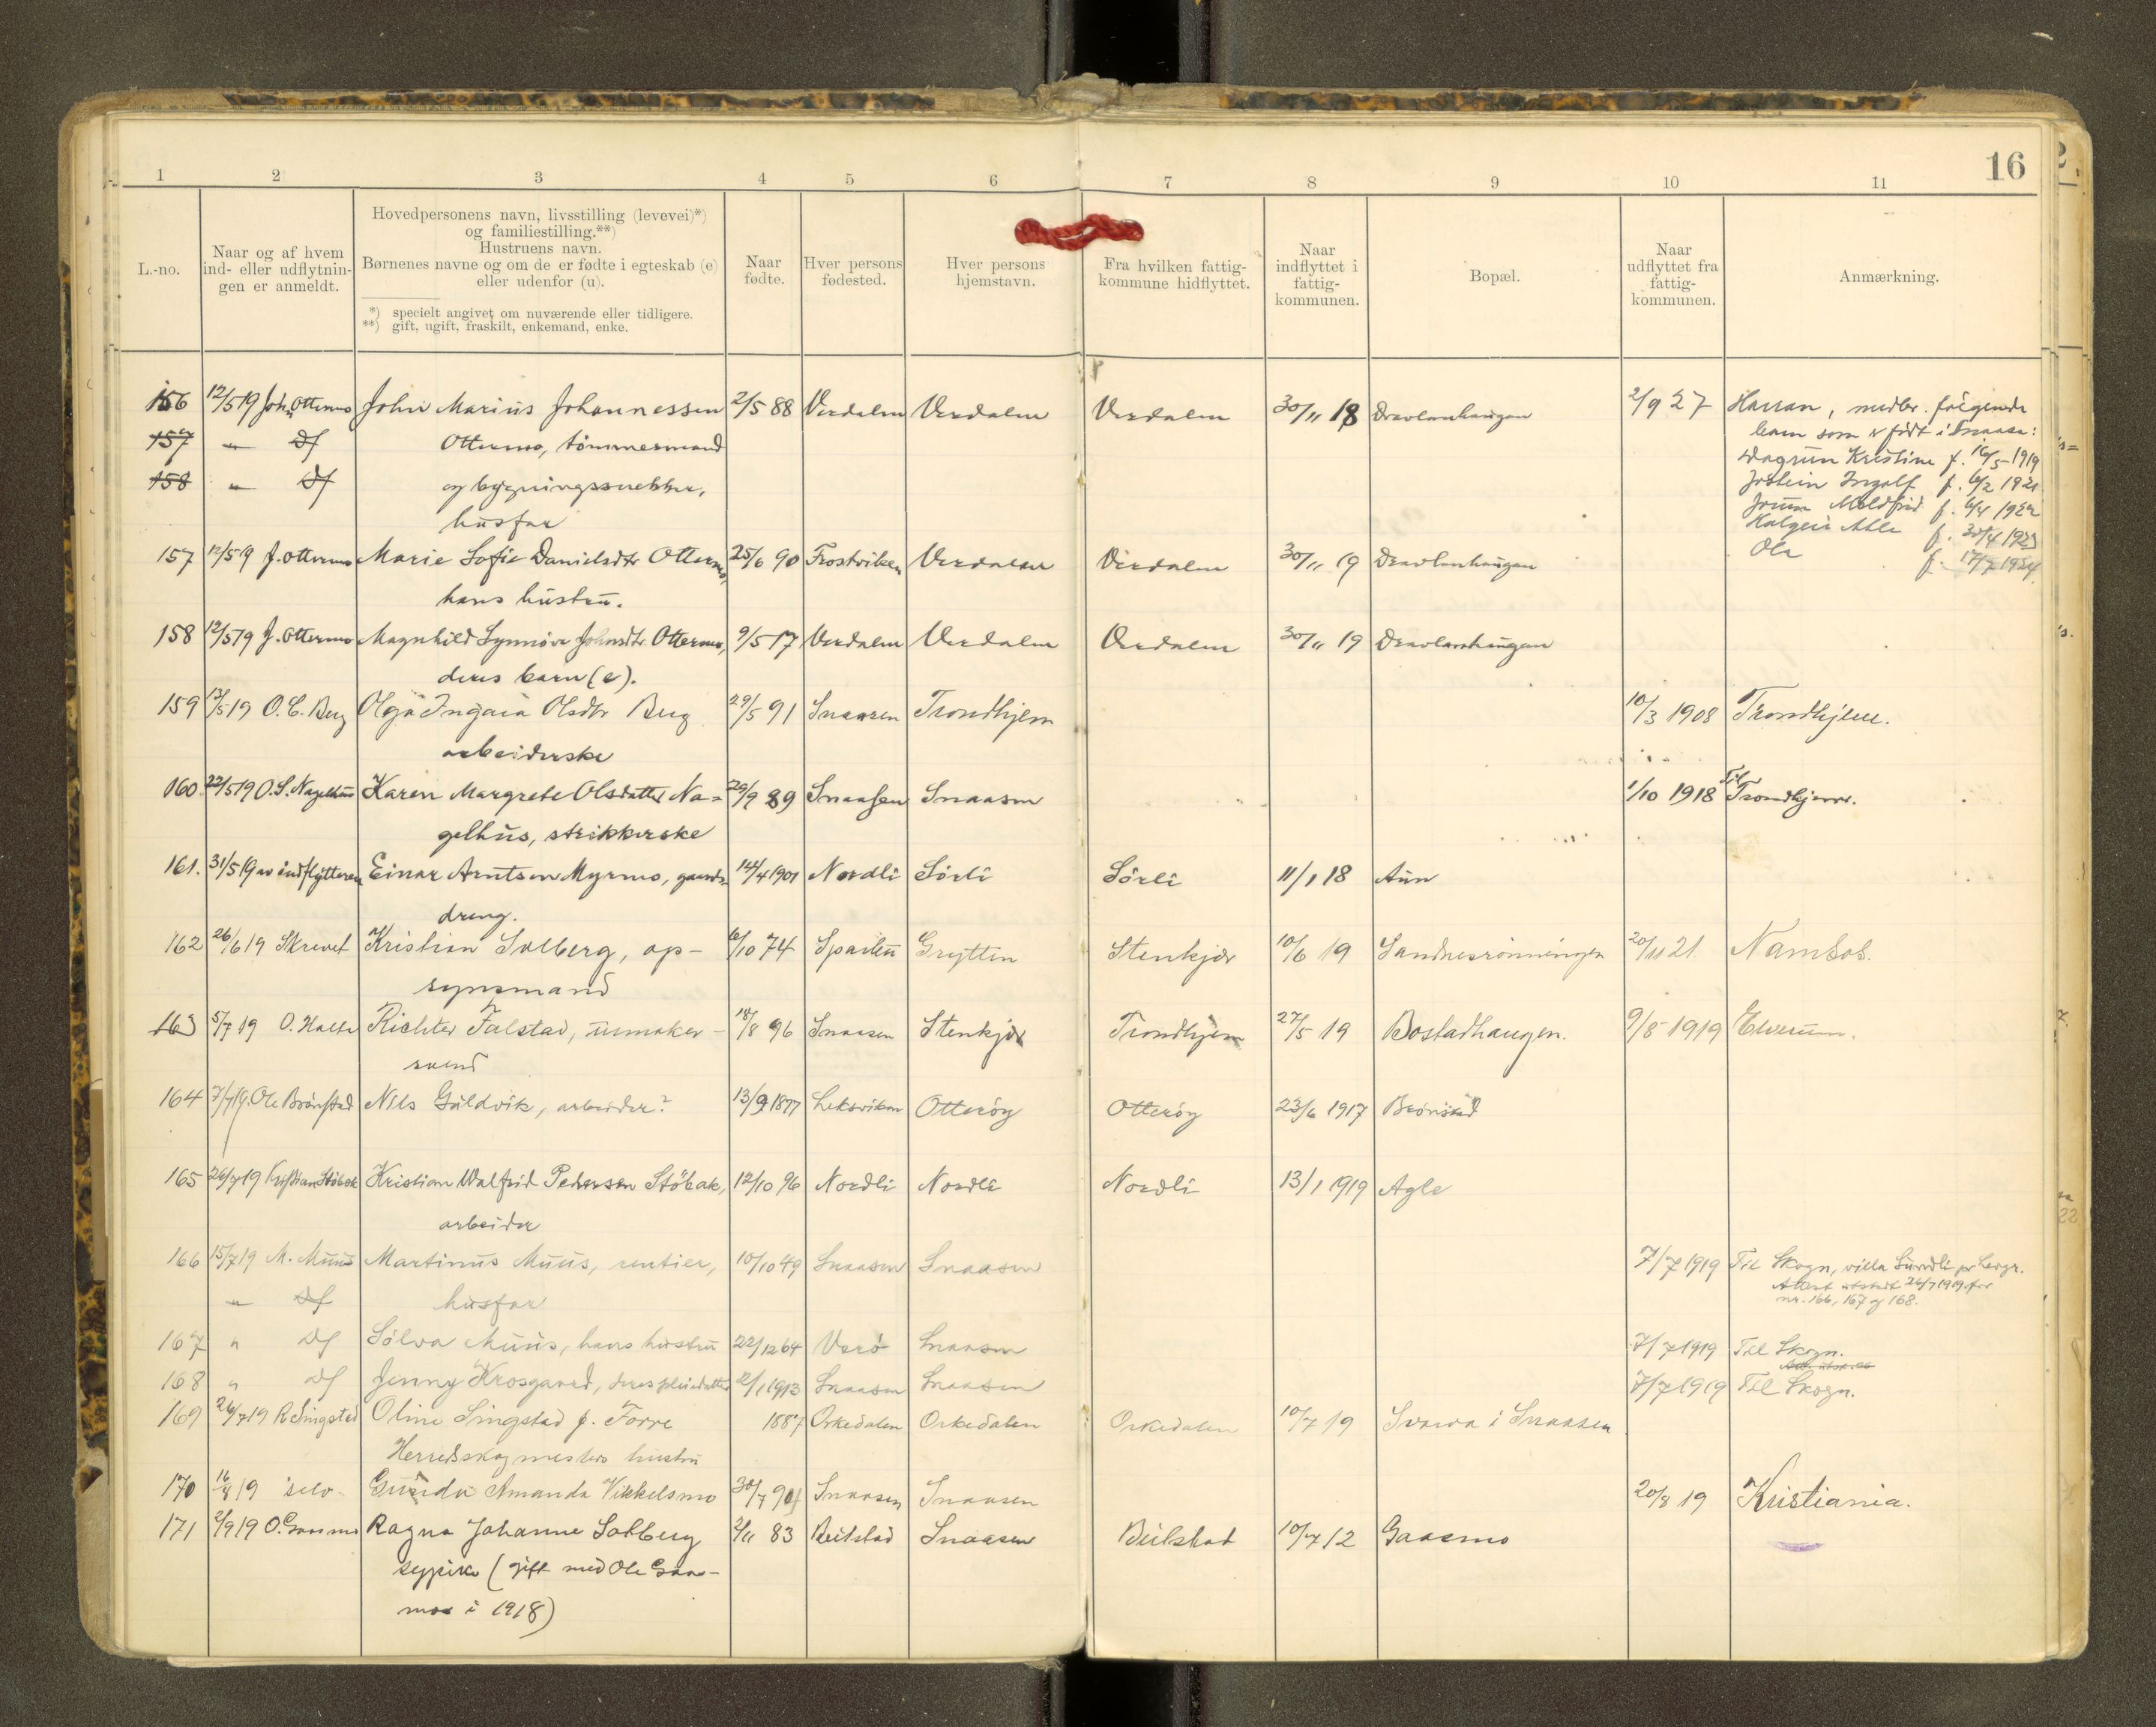 16
1 2 3 4 5 6 7 8 9 10 11
L.-no.
Naar og af hvem
ind- eller udflytnin-
gen er anmeldt.
Hovedpersonens navn, livsstilling (levevei)*)
og familiestilling.**)
Hustruens navn.
Børnenes navne og om de er fødte i egteskab (e)
eller udenfor (u).
*) specielt angivet om nuværende eller tidligere.
**) gift, ugift, fraskilt, enkemand, enke.
Naar
fødte.
Hver persons
fødested.
Hver persons
hjemstavn.
Fra hvilken fattig-
kommune hidflyttet.
Naar
indflyttet i
fattig-
kommunen.
Bopæl.
Naar
udflyttet fra
fattig-
kommunen.
Anmærkning.
156 12/5 19 John Ottermo John Marius Johannessen 2/5 88 Verdalen Verdalen Verdalen 30/11 18 Dravlanhaugan 2/9 27 Harran, medbr. følgende
157 " Df Ottermo, tømmermand barn som er født i Snaasa:
158 " Df og bygningssnekker, Dagrun Kristine f. 16/5-1919
husfar Jostein Ingolf f. 6/2 1921
Jorunn Moldfrid f. 6/4 1922
Halgeir Atle f. 30/4 1923
Ola f. 17/7 1924.
157 12/5 19 J. Ottermo Marie Sofie Danielsdtr Ottermo, 25/6 90 Frostviken Verdalen Verdalen 30/11 19 Dravlanhaugan
hans hustru.
158 12/5 19 J. Ottermo Magnhild Synnøve Johnsdtr. Ottermo, 9/5 17 Verdalen Verdalen Verdalen 30/11 19 Dravlanhaugan
deres barn (e).
159 13/5 19 O. C. Berg Olga Ingaia Olsdtr Berg 29/5 91 Snaasen Trondhjem 10/3 1908 Trondhjem.
arbeiderske
160 22/5 19 O. S. Nagelhus Karen Margrete Olsdatter Na= 29/9 89 Snaasen Snaasen 1/10 1918 Til Trondhjem.
gelhus, strikkerske
161. 31/5 19 av indflytteren Einar Arntsen Myrmo, gaards- 14/4 1901 Nordli Sørli Sørli 11/1 18 Aun
dreng.
162 26/6 19 Skrevet Kristian Solberg, op- 6/10 74 Sparbu Grytten Stenkjær 10/6 19 Sandnesrønningen 20/11 21 Namsos.
synsmand
163 5/7 19 O. Richter Falstad, urmaker- 18/8 96 Snaasen Stenkjær Trondhjem 27/5 19 Bostadhaugen. 9/8 1919 Elverum.
svend
164 7/7 19. Ole Brønstad Nils Guldvik, arbeider? 13/9 1877 Leksviken Otterøy Otterøy 23/6 1917 Brønstad
165 26/7 19 Kristian Støbak Kristian Walfrid Pedersen Støbak, 12/10 96 Nordli Nordli Nordli 13/1 1919 Agle
arbeider
166 15/7 19 M. Muus Martinus Muus, rentier, 10/10 49 Snaasen Snaasen 7/7 1919 Til Skogn, villa Sundli pr Levgr.
" Df husfar Attest utstedt 26/7 1919 for
nr. 166, 167 og 168.
167 " Df Sølva Muus, hans hustru 22/12 64 Værø Snaasen 7/7 1919 Til Skogn.
168 " Df Jenny Krosgaard, deres pleiedatter 2/1 1913 Snaasen Snaasen 7/7 1919 Til Skogn.
169 26/7 19 R Singstad Oline Singstad f. Forve 1887 Orkedalen Orkedalen Orkedalen 10/7 19 Svarva i Snaasen
Herredskogmesters hustru
170 16/8 19 selv Gunda Amanda Vikkelsmo 30/7 901 Snaasen Snaasen 20/8 19 Kristiania.
171 2/9 19 O. Gaasmo Ragna Johanne Solberg 2/11 83 Beitstad Snaasen Beitstad 10/4 12 Gaasmo
sypike (gift med Ole Gaas-
mo i 1918)